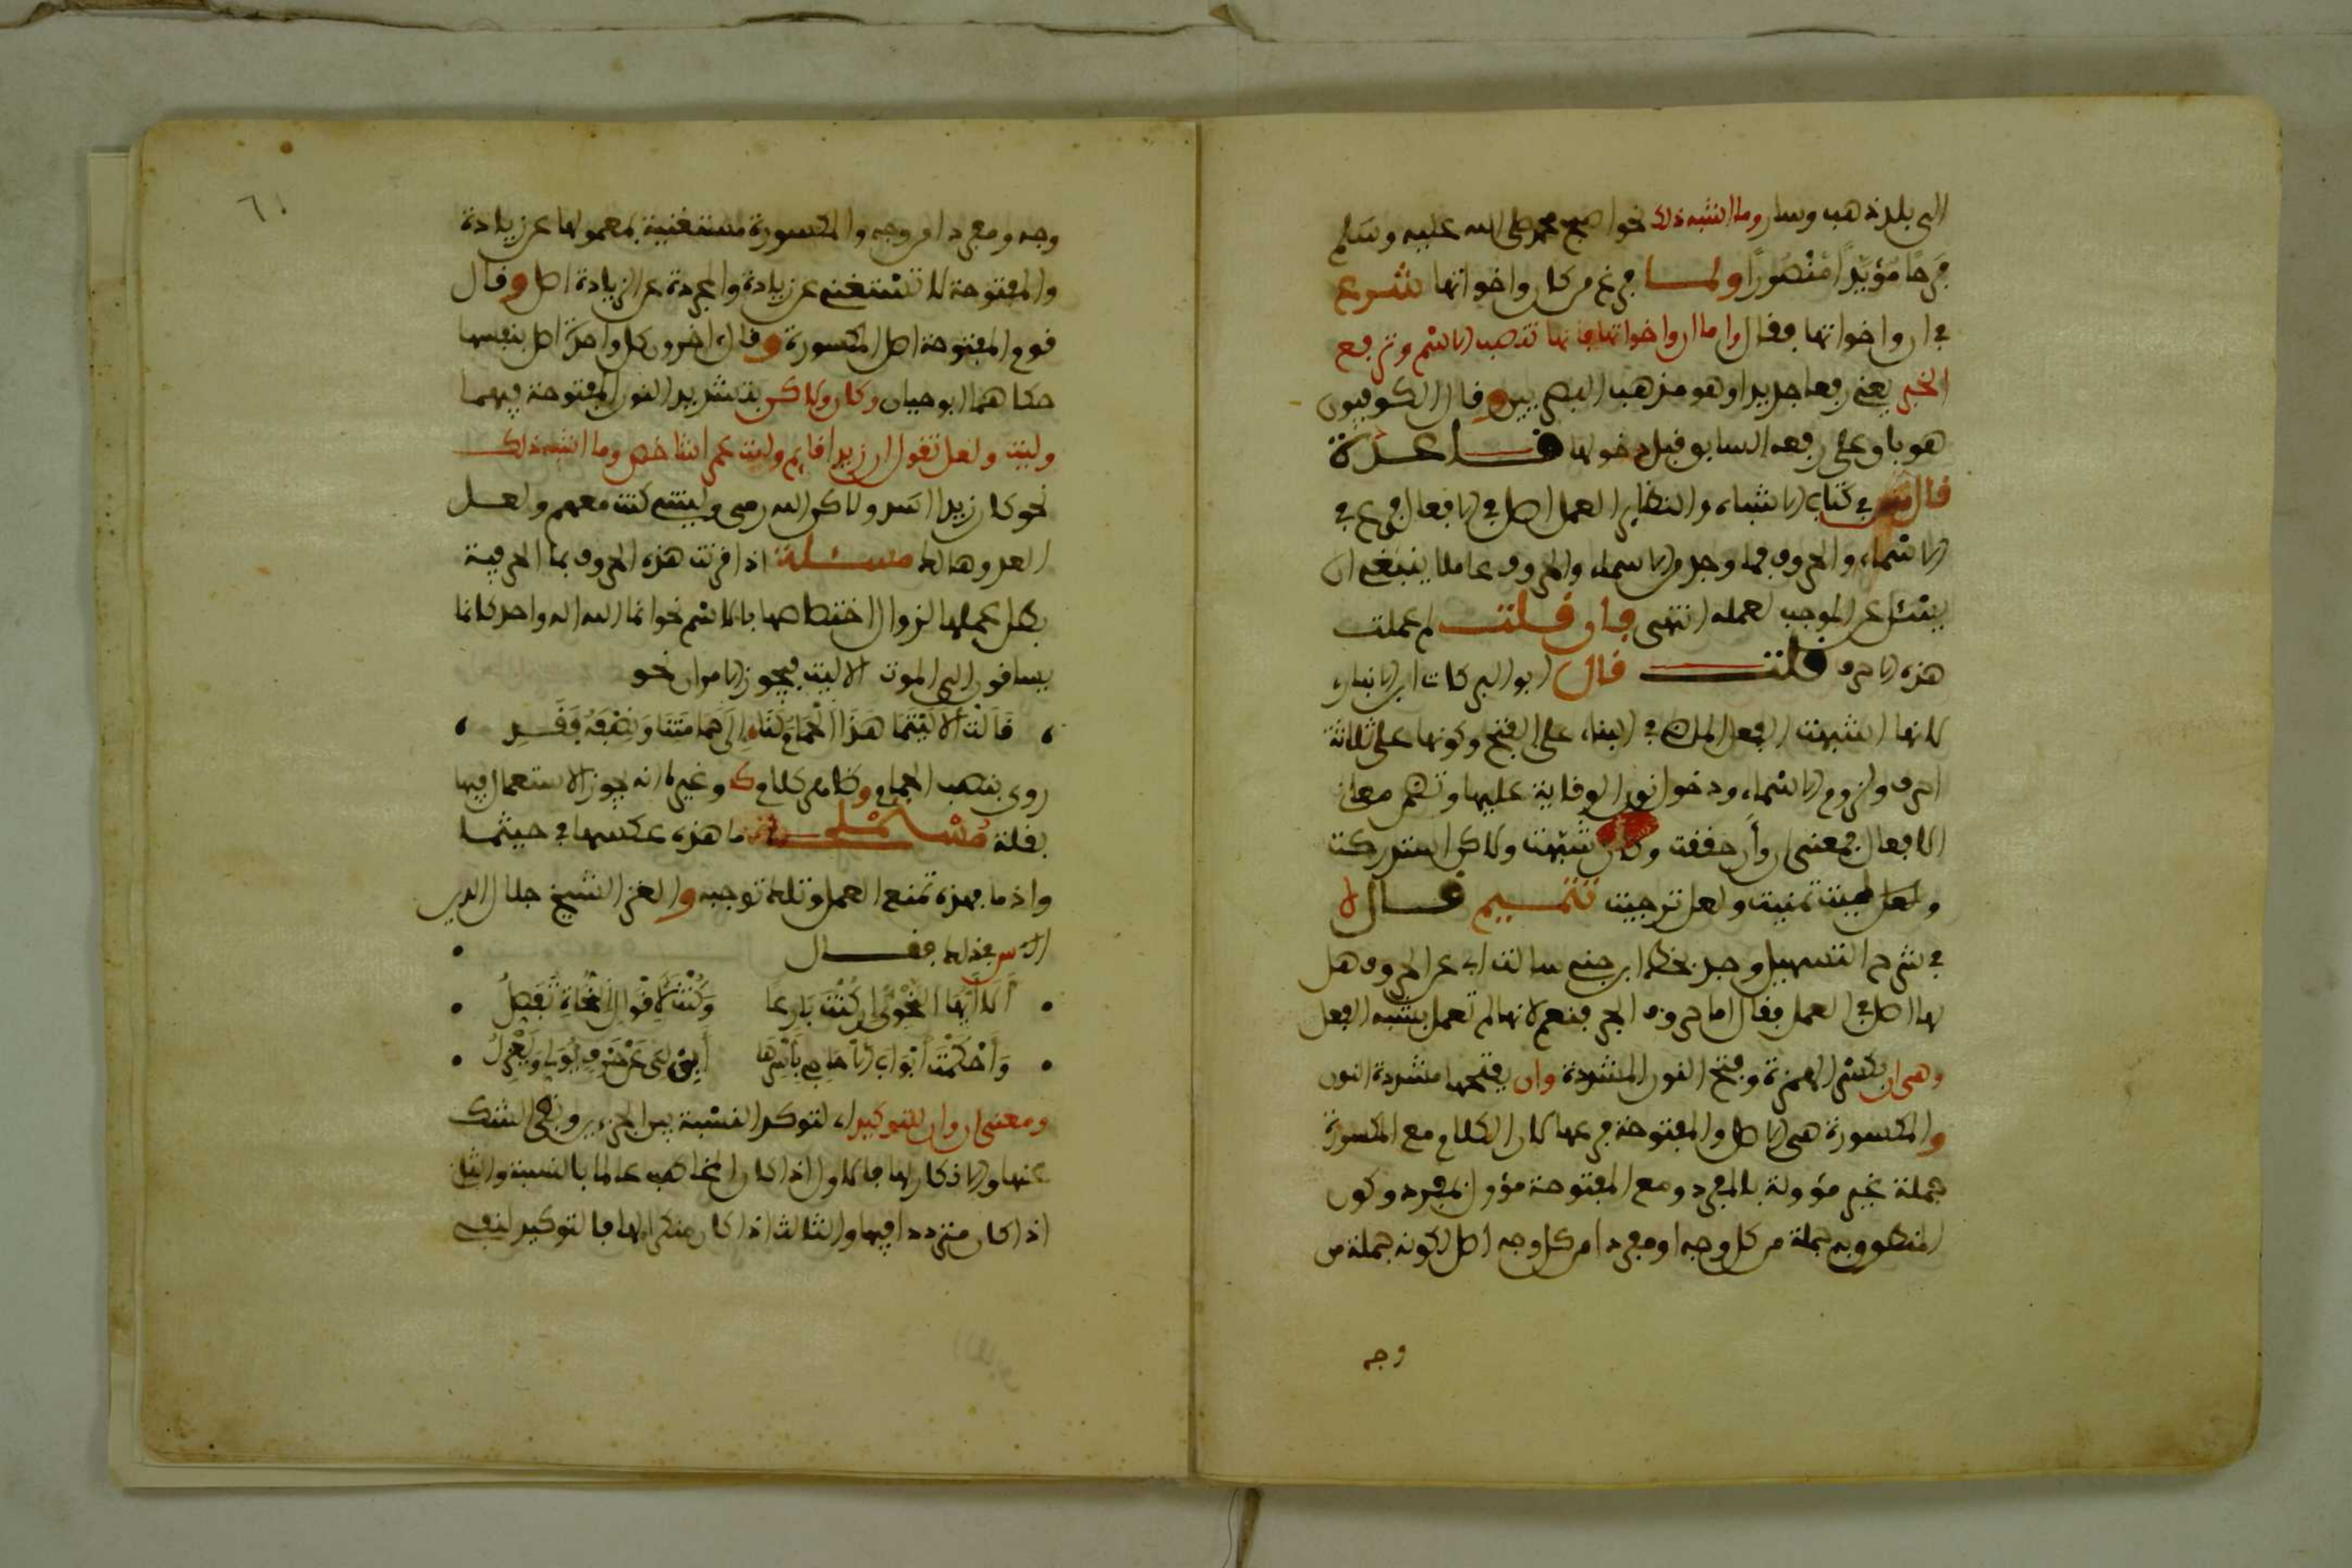 الى بلد ذهب وسار وما اشبه ذلك نحو اصبح محمد صلى الله عليه وسلم
فرحًا مؤيّدًا منصُورًا ولمــا فرغ من كان واخواتها شرع
في ان واخواتها فقال واما ان واخواتها فانها تنصب الاسم وترفع
الخبر يعني رفعا جديدا وهو مذهب البصريين وقال الكوفيون
هو باق على رفعه السابق قبل دخولها قــاعــدة
قال في كتاب الاشباه والنظاير العمل اصل في الافعال فرع في
الاسماء والحروف فما وجد من الاسماء والحروف عاملا ينبغي ان
يسئل عن الموجب لعمله انتهى فان قــلت لم عملت
هذه الاحرف قلت قال ابو البركات ابن الانباري
لانها اشبهت الفعل الماضي في البناء على الفتح وكونها على ثلاثة
احرف ولزوم الاسماء ودخول نون الوقاية عليها وتضمن معاني
الافعال فمعنى ان وأن حققت وكان شبّهت ولاكن استدركت
وليت تمنيت ولعل ترجيت تتميــم قــال
في شرح التسهيل وجد بخط ابن جني سالت ابا عن الحروف هل
لها اصل في العمل فقال اما حروف الجر فنعم لانها لم تعمل بشبه الفعل
وهي ان بكسر الهمزة وفتح النون المشددة وان بفتحها مشددة النون
والمكسورة هي الاصل والمفتوحة فرعها لان الكلام مع المكسورة
جملة غير مؤولة بالمفرد ومع المفتوحة مؤول بمفرد وكون
المنطوق به جملة من كل وجه او مفردا من كل وجه اصل لكونه جملة من
وجه
٦١
وجه ومفردا من وجه والمكسورة مستغنية بمعمولها عن زيادة
والمفتوحة لا تستغني عن زيادة والمجردة عن الزيادة اصل وقال
قوم المفتوحة اصل المكسورة وقال اخرون كل واحدة اصل بنفسها
حكاهما ابو حيان وكان ولاكن بتشديد النون المفتوحة فيهما
وليت ولعل تقول ان زيدا قايم وليت عمرا شاخص وما اشبه ذلك
نحو كان زيدا اسد ولاكن الله رمى وليتني كنت معهم ولعــل
العدو هالك مســئلة اذا قرنت هذه الحروف بما الحرفية
بطل عملها لزوال اختصاصها بالاسم نحو انما الله اله واحد كانما
يساقون الى الموت الا ليت فيجوز الامران نحو
، قَالَت ألا ليْتَمَا هَذَا الحَمَامُ لَنَا إلى حَمَامَتِنَا وَنِصْفَهُ فَقَدِ ،
روي بنصب الحمام وظاهر كلام ك وغيره انه يجوز الاستعمال فيها
بقلة مسئلة ما هذه عكسها في حيثمــا
واذ ما فهذه تمنع العمل وتلك توجبه والغز الشيخ جلال الدين
في ذلك فقــال
• ألا أيُّهَا النَّحْوِيُّ إن كُنْتَ بَارِعَا وَكُنْتَ لأقْوَالِ النُّحَاةِ تُفَصِّلُ •
• وَأحْكَمْتَ أبْوَابَ الأحَاجِي بِأَسْرِهَا أَبِنْ لِي عَنْ حَرْفٍ يُوَلِّي وَيَعْزِلُ •
ومعنى ان وان للتوكيد اي لتوكيد النسبة بين الجزءين ونفي الشك
عنها والانكار لها فالاول اذا كان المخاطب عالما بالنسبة والثاني
اذا كان مترددا فيها والثالث اذا كان منكرا لها فالتوكيد لنفي